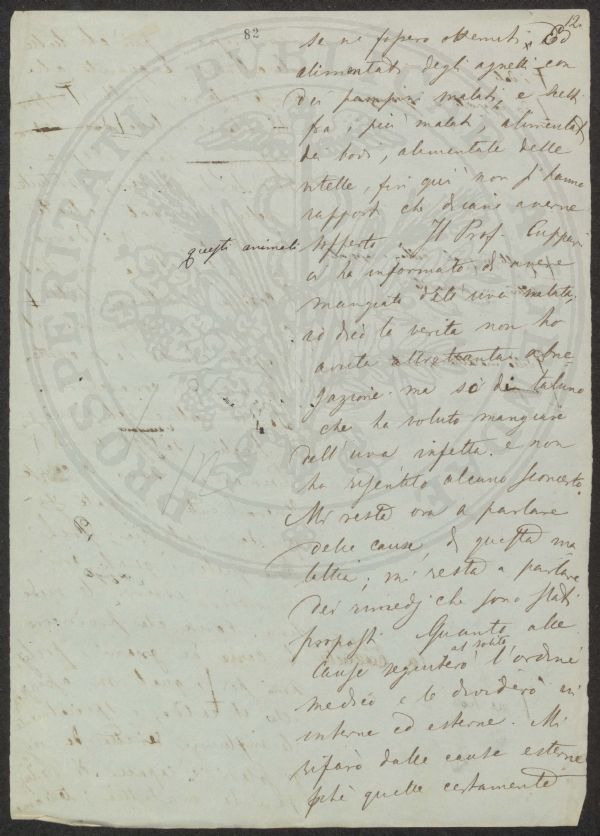 82
12.
se ne sopero ottenuti. Ed
alimentati degli agnelli con
dei pampini malati, e scelti
fra i più malati, alimentati
de bovi, alimentate delle
vitelle, fin qui non si hanno
rapporti che dicano averne
questi animali sofferto. Il Prof. Cuppari
ci ha informato di avere
mangiato dell'uva malata,
io dico la verità non ho
avuta altrettanta abne
gazione. ma so di taluno
che ha voluto mangiare
dell'uva infetta. e non
ha risentito alcuno sconcerto.
Mi resta ora a parlare
delle cause di questa ma
lattia, mi resta a parlare
dei rimedj che sono stati
proposti. Quanto alle
cause seguiterò al solito l'ordine
medico e le dividerò in
interne ed esterne. Mi
rifarò dalle cause esterne
quelle certamente
PROSPERITATI